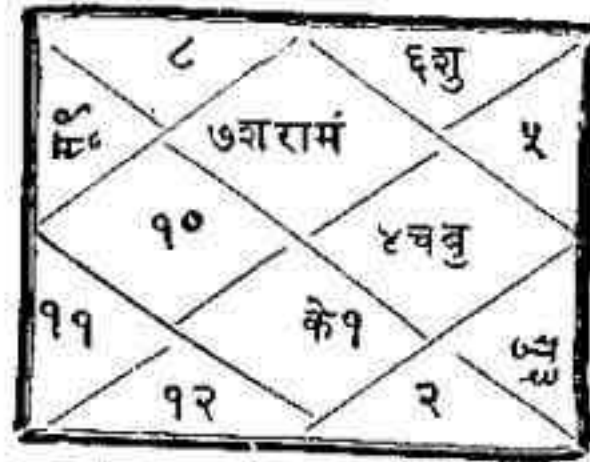 ८ ६शु
७शरामं ५
१० ४चबु
११ के१
१२ २